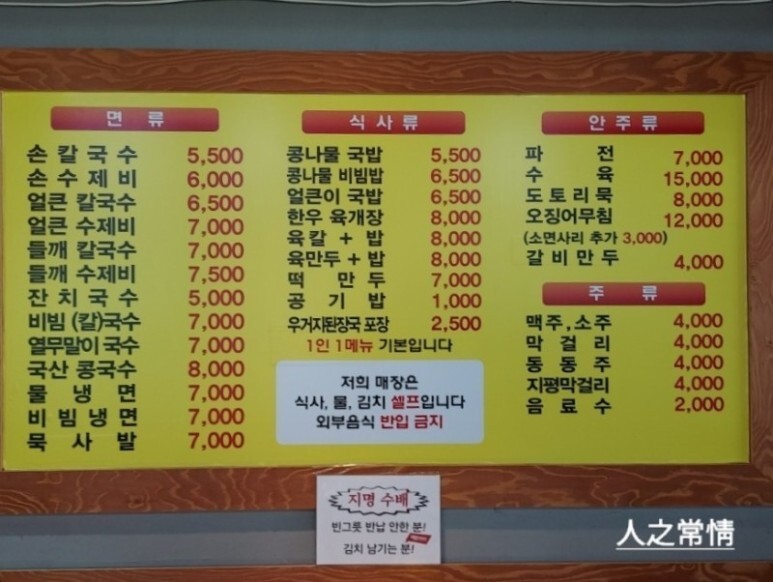 면 류
손 칼 국 수 5,500
손 수 제 비 6,000
얼큰 칼국수 6,500
얼큰 수제비 7,000
들깨 칼국수 7,000
들깨 수제비 7,500
잔 치 국 수 5,000
비빔 (칼)국수 7,000
열무말이 국수 7,000
국산 콩국수 8,000
물 냉 면 7,000
비 빔 냉 면 7,000
묵 사 발 7,000
식 사 류
콩나물 국밥 5,500
콩나물 비빔밥 6,500
얼큰이 국밥 6,500
한우 육개장 8,000
육칼 + 밥 8,000
육만두 + 밥 8,000
떡 만 두 7,000
공 기 밥 1,000
우거지된장국 포장 2,500
1인 1메뉴 기본입니다
저희 매장은
식사, 물, 김치 셀프입니다
외부음식 반입 금지
안 주 류
파 전 7,000
수 육 15,000
도 토 리 묵 8,000
오징어무침 12,000
(소면사리 추가 3,000)
갈 비 만 두 4,000
주 류
맥주, 소주 4,000
막 걸 리 4,000
동 동 주 4,000
지평막걸리 4,000
음 료 수 2,000
지명 수배
빈그릇 반납 안한 분!
김치 남기는 분!
人之常情